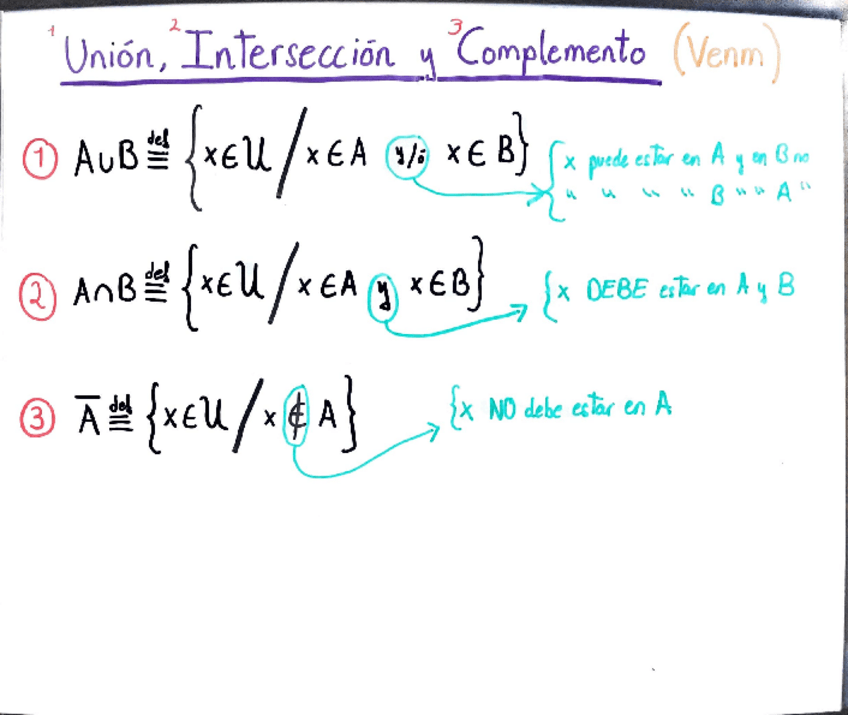 1 Unión, 2 Intersección y 3 Complemento (Venm)
① A∪B ≝ {x∈U / x∈A y/o x∈B} {x puede estar en A y en B no
" " " " B " " A "
② A∩B ≝ {x∈U / x∈A y x∈B} {x DEBE estar en A y B
③ A̅ ≝ {x∈U / x∉A} {x NO debe estar en A